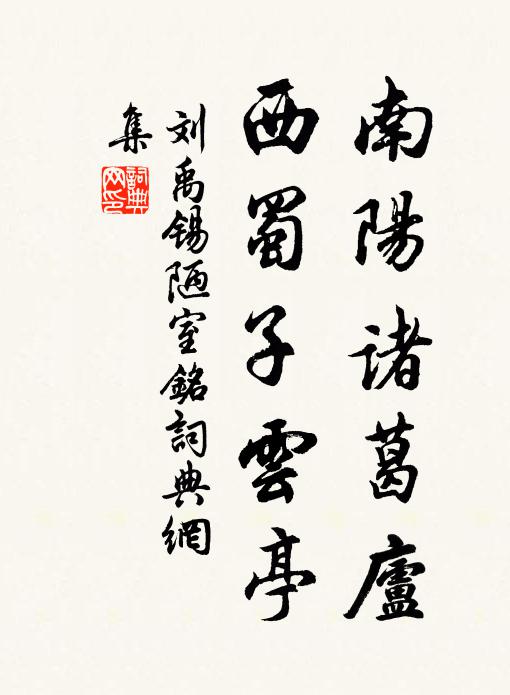 南陽诸葛廬
西蜀子雲亭
刘禹锡陋室銘詞典網
集
詞典
网印